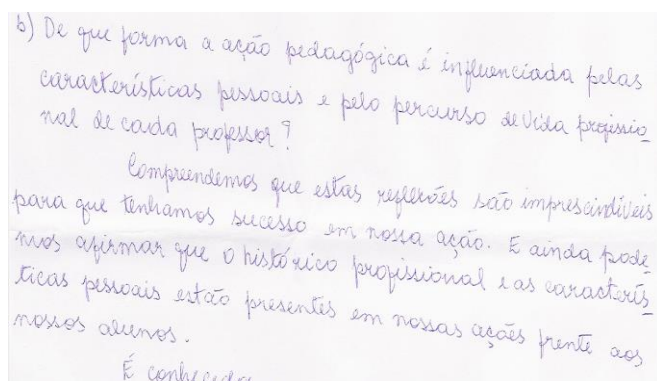 b) De que forma a ação pedagógica é influenciada pelas
características pessoais e pelo percurso de vida profissio
nal de cada professor?
Compreendemos que estas reflexões são imprescindíveis
para que tenhamos sucesso em nossa ação. E ainda pode
mos afirmar que o histórico profissional e as caracterís
ticas pessoais estão presentes em nossas ações frente aos
nossos alunos.
É